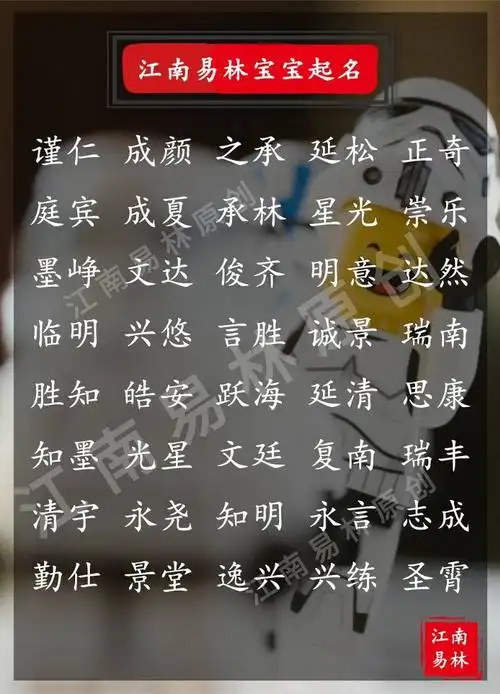 江南易林宝宝起名
谨仁 成颜 之承 延松 正奇
庭宾 成夏 承林 星光 崇乐
墨峥 文达 俊齐 明意 达然
临明 兴悠 言胜 诚景 瑞南
胜知 皓安 跃海 延清 思康
知墨 光星 文廷 复南 瑞丰
清宇 永尧 知明 永言 志成
勤仕 景堂 逸兴 兴练 圣霄
江南
易林
江南易林原创
江南易林原创
江南易林原创